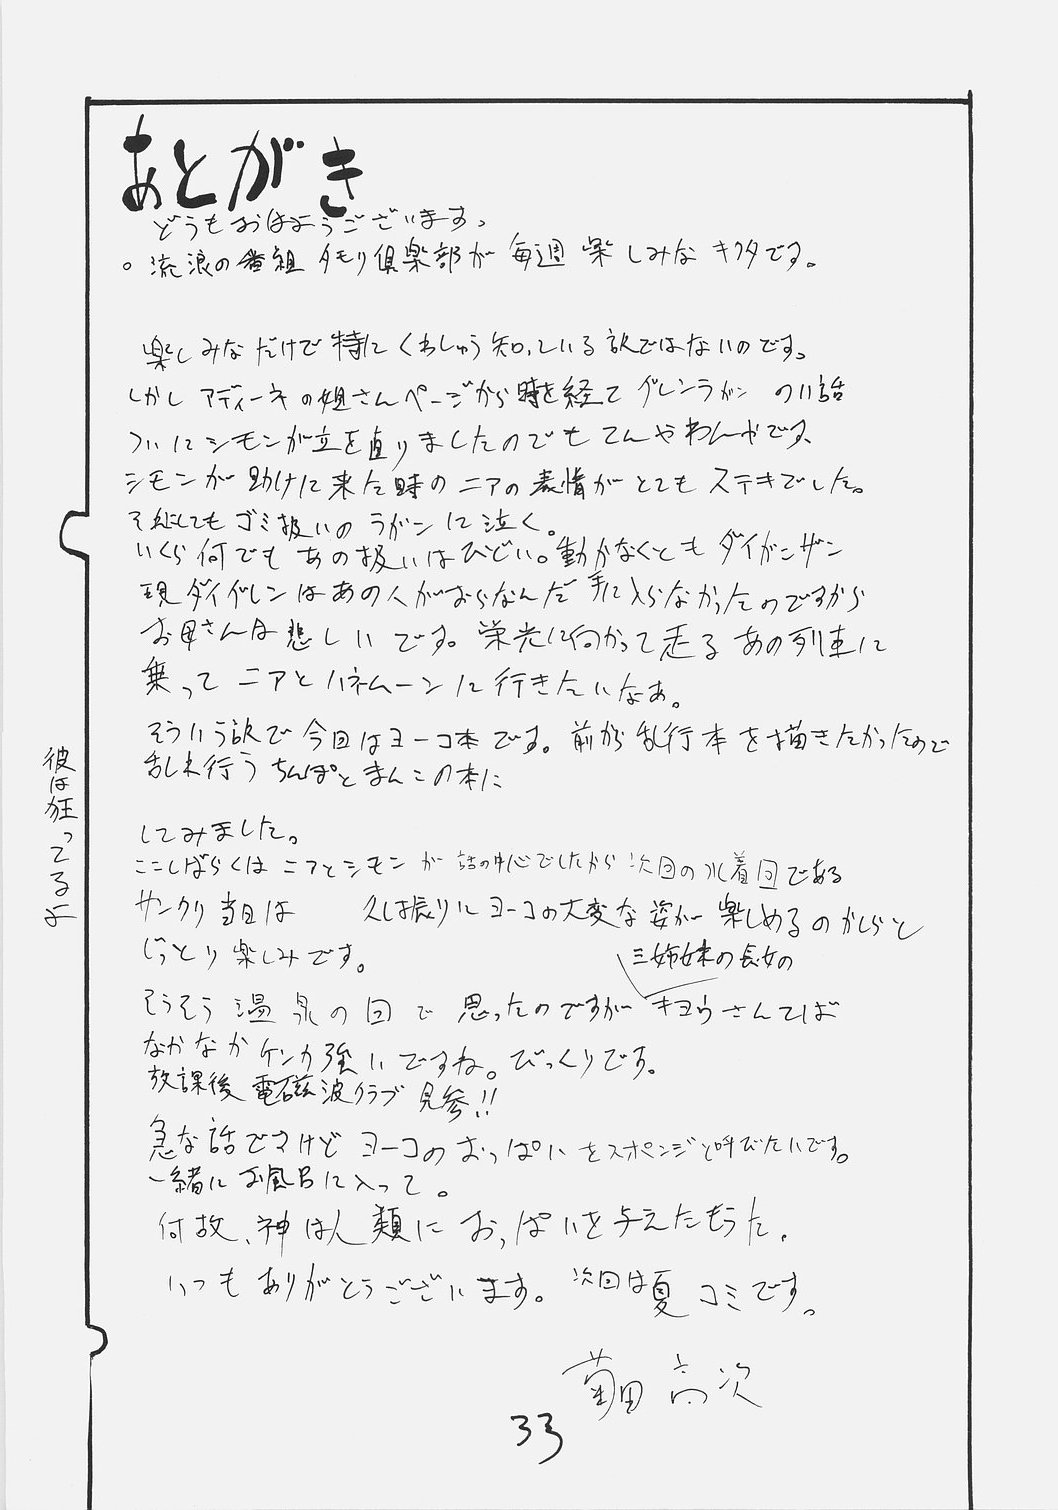 あとがき
どうもおはようございます。
流浪の番組 タモリ倶楽部が 毎週 楽しみな キクタです。
楽しみなだけで 特にくわしゅう知っている訳ではないのです。
しかし アディーネの姐さんページから時を経て グレンラガン の11話
ついにシモンが立ち直りましたのでもてんやわんやです、
シモンが助けに来た時のニアの表情がとてもステキでした。
それにしてもゴミ扱いのラガンに泣く。
いくら何でもあの扱いはひどい。動かなくともダイガンザン
現ダイグレンはあの人がおらなんだ手に入らなかったのですから
お母さんは悲しいです。栄光に向かって走るあの列車に
乗ってニアとハネムーンに行きたいなぁ。
そういう訳で今回はヨーコ本です。前から乱行本を描きたかったので
乱れ行うちんぽとまんこの本に
してみました。
ここしばらくはニアとシモンが話の中心でしたから次回の水着回である
サンクリ当日は 久し振りにヨーコの大変な姿が楽しめるのかしらと
じっとり楽しみです。
三姉妹の長女の
そうそう温泉の回で思ったのですが キヨウさんてば
なかなかケンカ強いですね。びっくりです。
放課後電磁波クラブ見参!!
急な話ですけどヨーコのおっぱいをスポンジと呼びたいです。
一緒にお風呂に入って。
何故、神は人類におっぱいを与えたもうた。
いつもありがとうございます。次回は夏コミです。
菊田 高次
33
彼は狂ってるよ